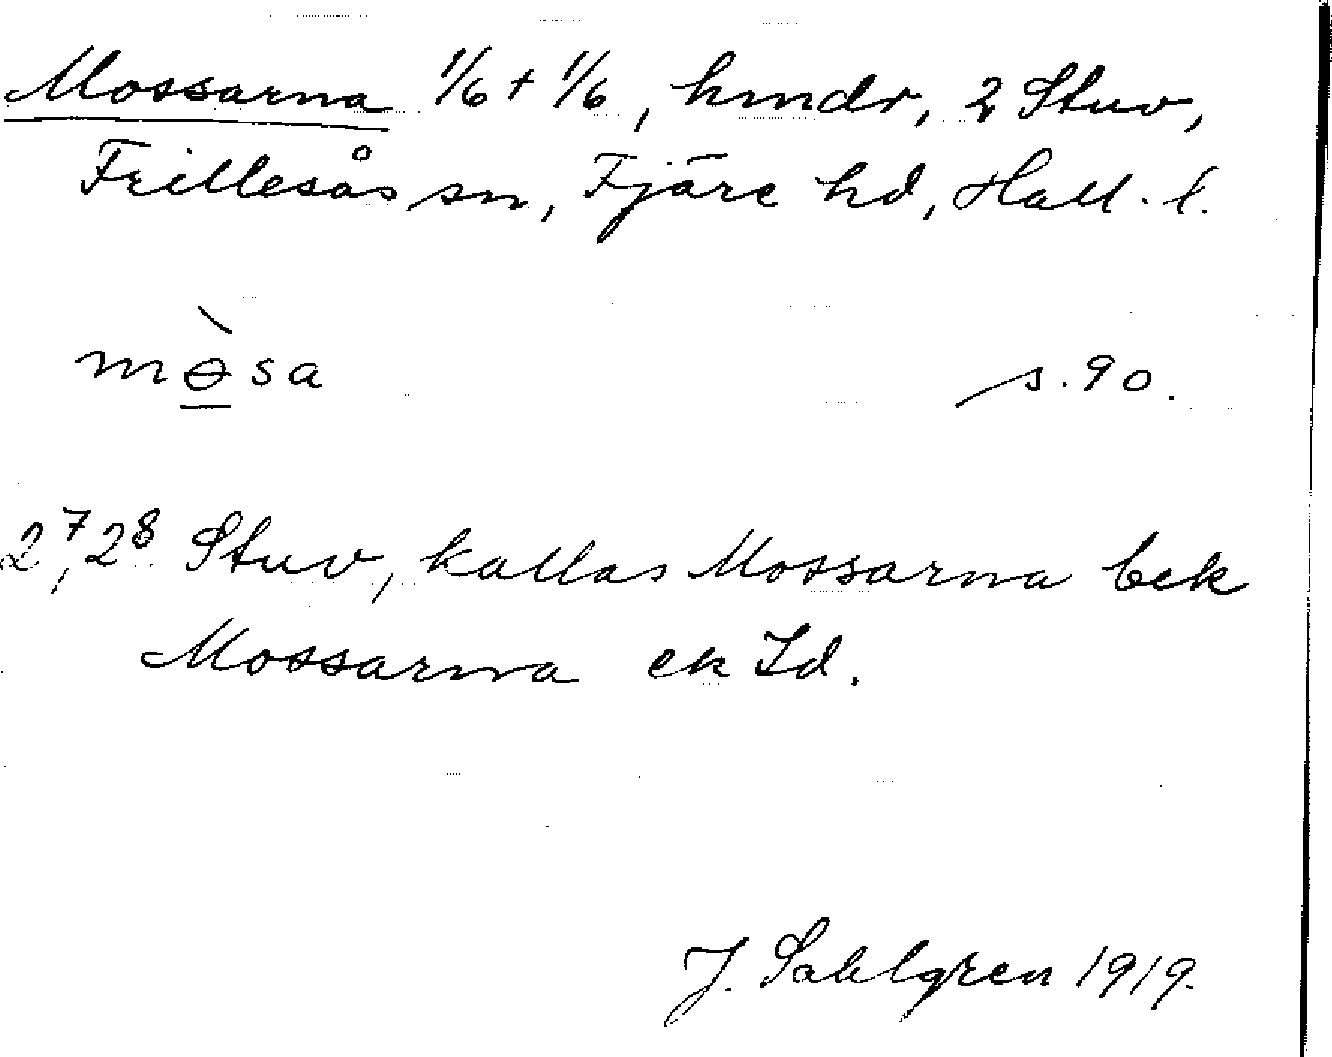 Mossarna 1/6 + 1/6, hmdr, 2 Stuv,
Frillesås sn, Fjäre hd, Hall. l.
mɵ̀sa s. 90.
2⁷, 2⁸ Stuv, kallas Mossarna bek
Mossarna ek Jd.
J. Sahlgren 1919.